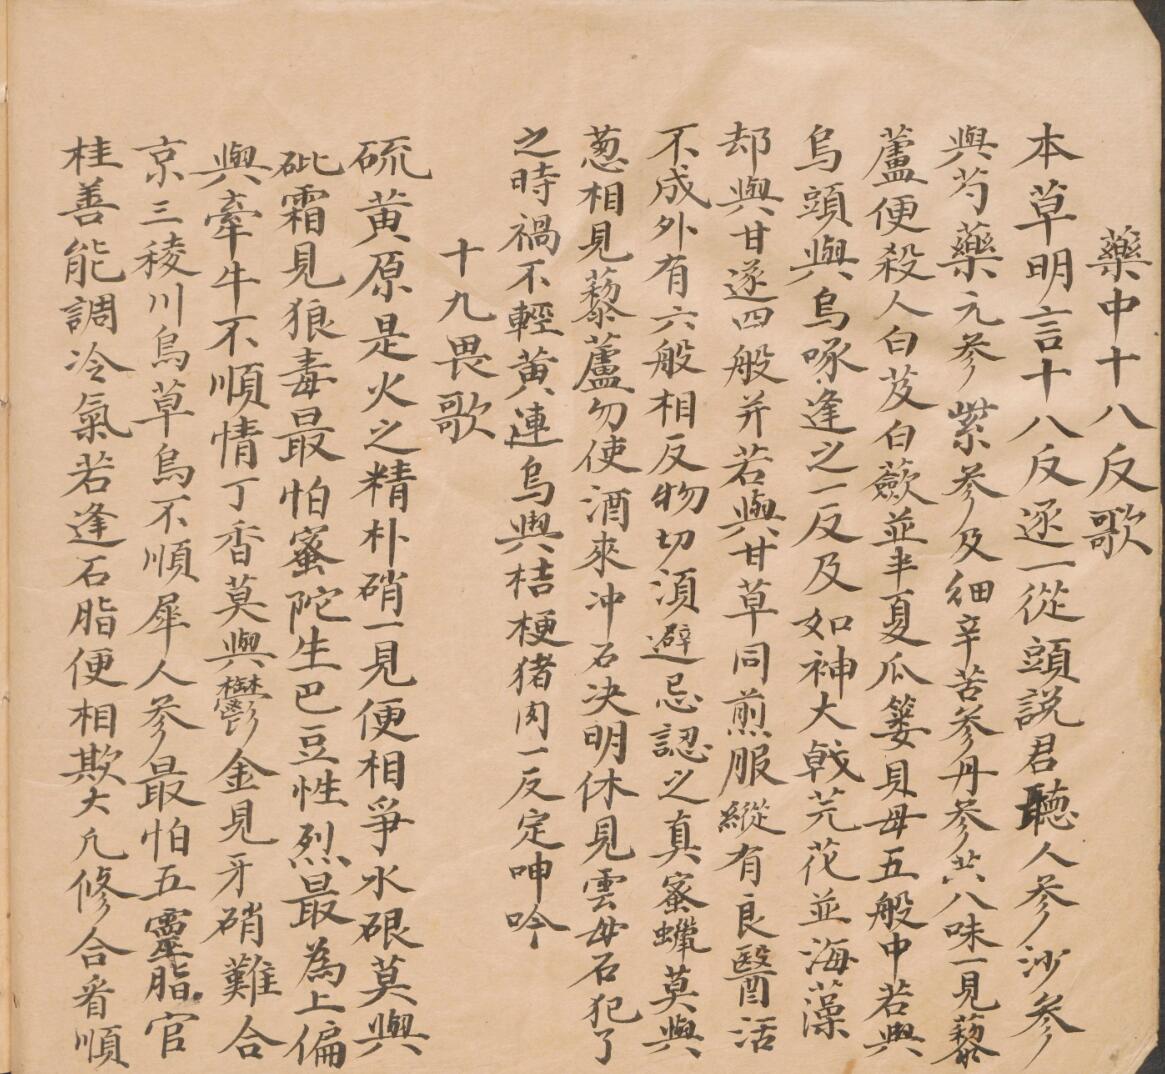 藥中十八反歌
本草明言十八反逐一從頭說君聽人參沙參
與芍藥元參紫參及細辛苦參丹參共八味一見藜
蘆便殺人白芨白蘞並半夏瓜蔞貝母五般中若與
烏頭與烏啄逢之一反及如神大戟芫花並海藻
却與甘遂四般并若與甘草同煎服縱有良醫活
不成外有六般相反物切須避忌認之真蜜蠟莫與
葱相見藜蘆勿使酒來冲石決明休見雲母石犯了
之時禍不輕黃連烏與桔梗猪肉一反定呻吟
十九畏歌
硫黃原是火之精朴硝一見便相爭水硍莫與
砒霜見狼毒最怕蜜陀生巴豆性烈最為上偏
與牽牛不順情丁香莫與鬱金見牙硝難合
京三稜川烏草烏不順犀人參最怕五靈脂官
桂善能調冷氣若逢石脂便相欺大凢修合看順